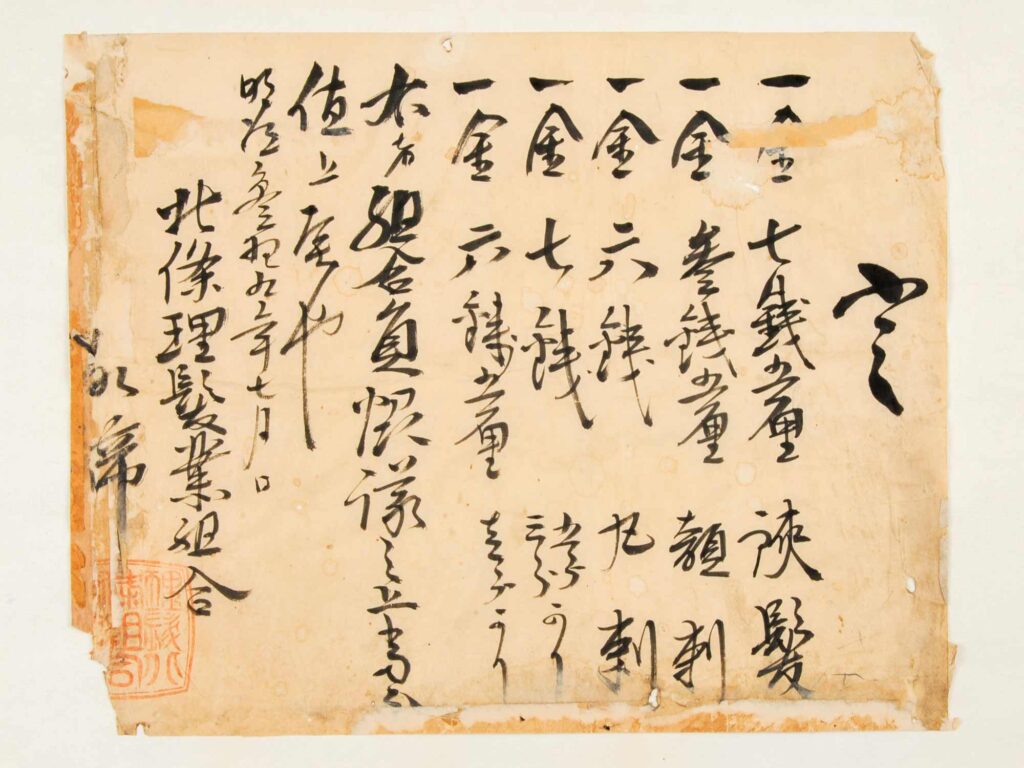 定
一金 七銭五厘 挟髪
一金 参銭五厘 顔剃
一金 六銭 丸剃
一金 七銭 五分かり 三分かり
一金 六銭五厘
右者組合員協議之上
値上
明治参拾九年七月日
北條理髪業組合